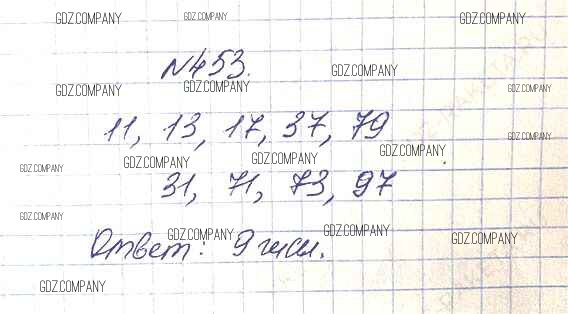 GDZ.COMPANY GDZ.COMPANY GDZ.COMPANY
№453.
GDZ.COMPANY
GDZ.COMPANY GDZ.COMPANY GDZ.COMPANY
11, 13, 17, 37, 79
GDZ.COMPANY
GDZ.COMPANY GDZ.COMPANY GDZ.COMPANY GDZ.COMPANY
31, 71, 73, 97
GDZ.COMPANY
GDZ.COMPANY GDZ.COMPANY GDZ.COMPANY
Ответ: 9 чисел.
GDZ.COMPANY